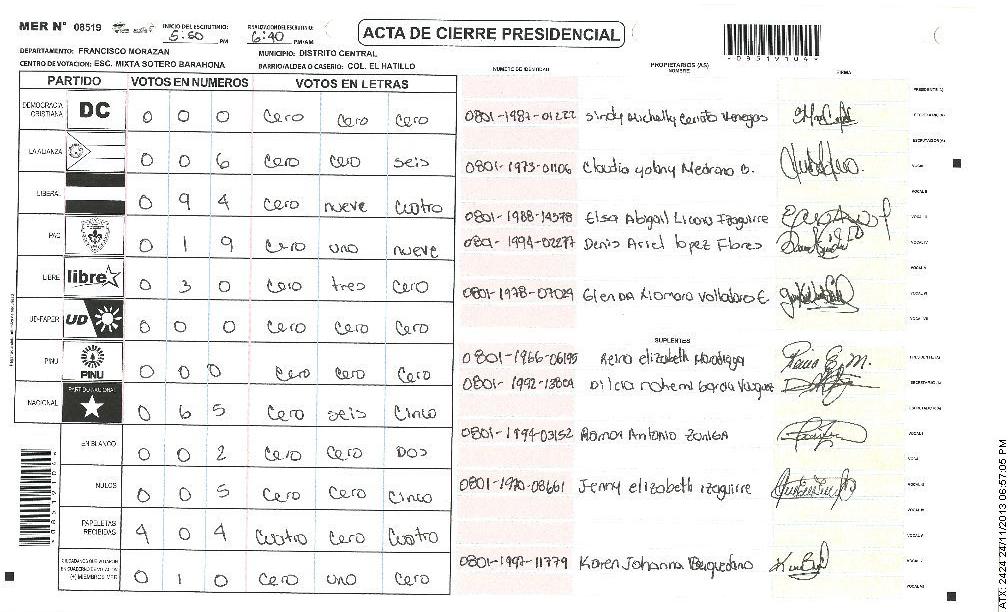 MER N° 08519
INICIO DEL ESCRUTINIO: 5:50 PM
FINALIZACION DEL ESCRUTINIO: 6:40 PM/AM
ACTA DE CIERRE PRESIDENCIAL
DEPARTAMENTO: FRANCISCO MORAZAN
MUNICIPIO: DISTRITO CENTRAL
CENTRO DE VOTACION: ESC. MIXTA SOTERO BARAHONA
BARRIO/ALDEA O CASERIO: COL. EL HATILLO
PARTIDO VOTOS EN NUMEROS VOTOS EN LETRAS
NUMERO DE IDENTIDAD PROPIETARIOS (AS) NOMBRE FIRMA
DEMOCRACIA CRISTIANA DC 0 0 0 Cero Cero Cero
LA ALIANZA 0 0 6 Cero Cero seis
LIBERAL 0 9 4 Cero nueve Cuatro
PAC 0 1 9 Cero uno nueve
LIBRE libre 0 3 0 Cero tres Cero
UD-FAPER UD 0 0 0 Cero Cero Cero
PINU PINU 0 0 0 Cero Cero Cero
NACIONAL PARTIDO NACIONAL 0 6 5 Cero seis Cinco
EN BLANCO 0 0 2 Cero Cero Dos
NULOS 0 0 5 Cero Cero Cinco
PAPELETAS RECIBIDAS 4 0 4 Cuatro Cero Cuatro
CIUDADANOS QUE VOTARON EN CUADERNO DE VOTACION (+) MIEMBROS MER 0 1 0 Cero uno Cero
0801-1987-01222 Sindy Michelly Cerrato Venegas
0801-1973-01106 Claudia yolany Medrano B.
0801-1988-14578 Elsa Abigail Licona Izaguirre
0801-1994-02277 Denis Ariel Lopez Flores
0801-1978-07029 Glenda Xiomara Valladares E.
SUPLENTES
0801-1966-06195 Reina Elizabeth
0801-1992-13804 Dilcia nohemi Garcia Vasquez
0801-1994-03152 Ramon Antonio Zuniga
0801-1970-08661 Jenny elizabeth izaguirre
0801-1997-11779 Karen Johanna
*0851V104*
ATX: 2424 24/11/2013 06:57:05 PM